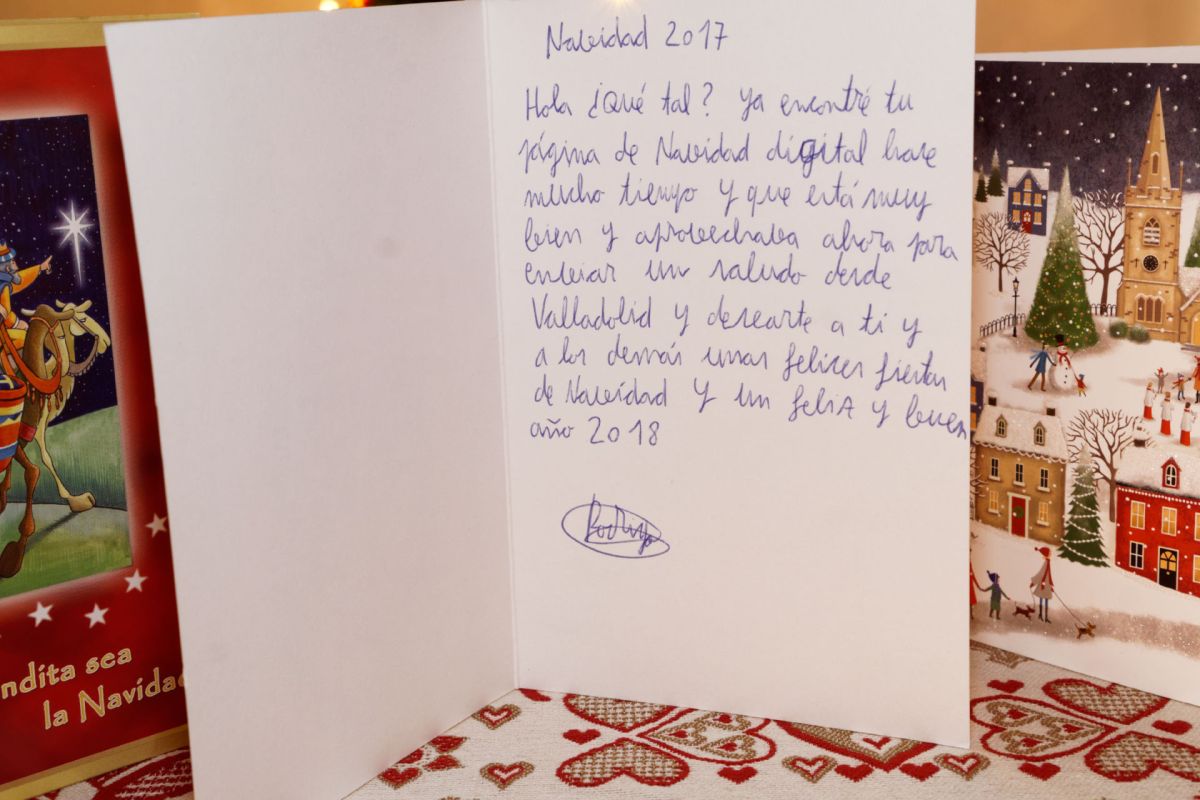 Navidad 2017
Hola ¿Qué tal? Ya encontré tu
página de Navidad digital hace
mucho tiempo y que está muy
bien y aprovechaba ahora para
enviar un saludo desde
Valladolid y desearte a ti y
a los demás unas felices fiestas
de Navidad y un feliz y buen
año 2018
Rodrigo
ndita sea
la Navidad